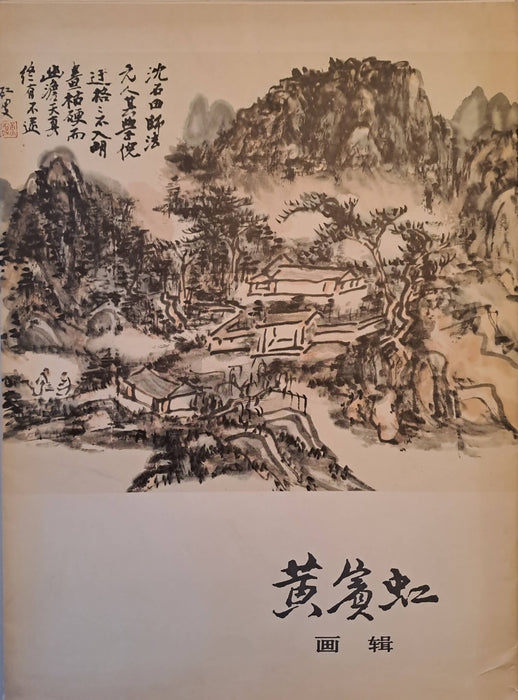 沈石田師法
元人其學倪
迂格〻不入明
畫枯硬而
幽澹天真
終有不逮
虹叟
黄賓虹
画辑